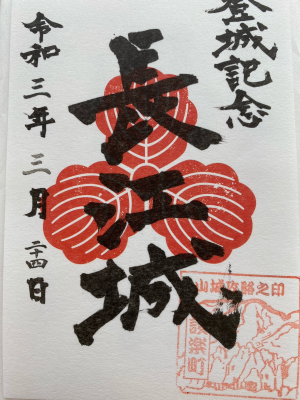 登城記念
長江城
令和三年三月二十四日
山城攻略之印
設楽町